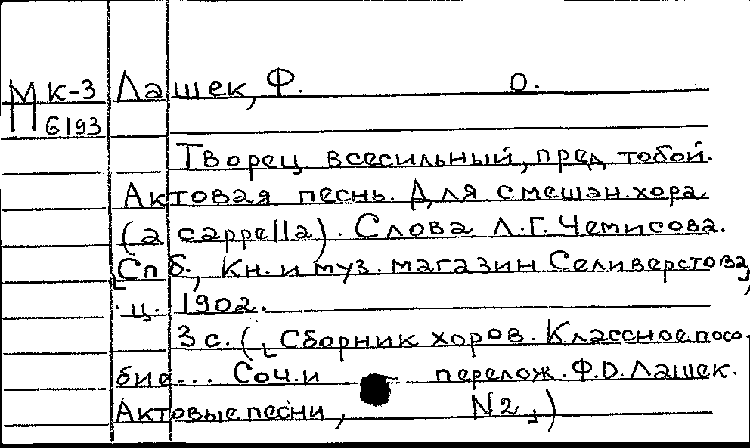 МК-3 Лашек, Ф. О.
6193
Творец всесильный, пред тобой.
Актовая песнь. Для смешан. хора
(a cappella). Слова Л.Г. Чемисова.
[Спб., Кн. и муз. магазин Селиверстова,
ц. 1902.
3 с. ([Сборник хоров. Классное посо-
бие... Соч. и перелож. Ф.О. Лашек.
Актовые песни, N2])